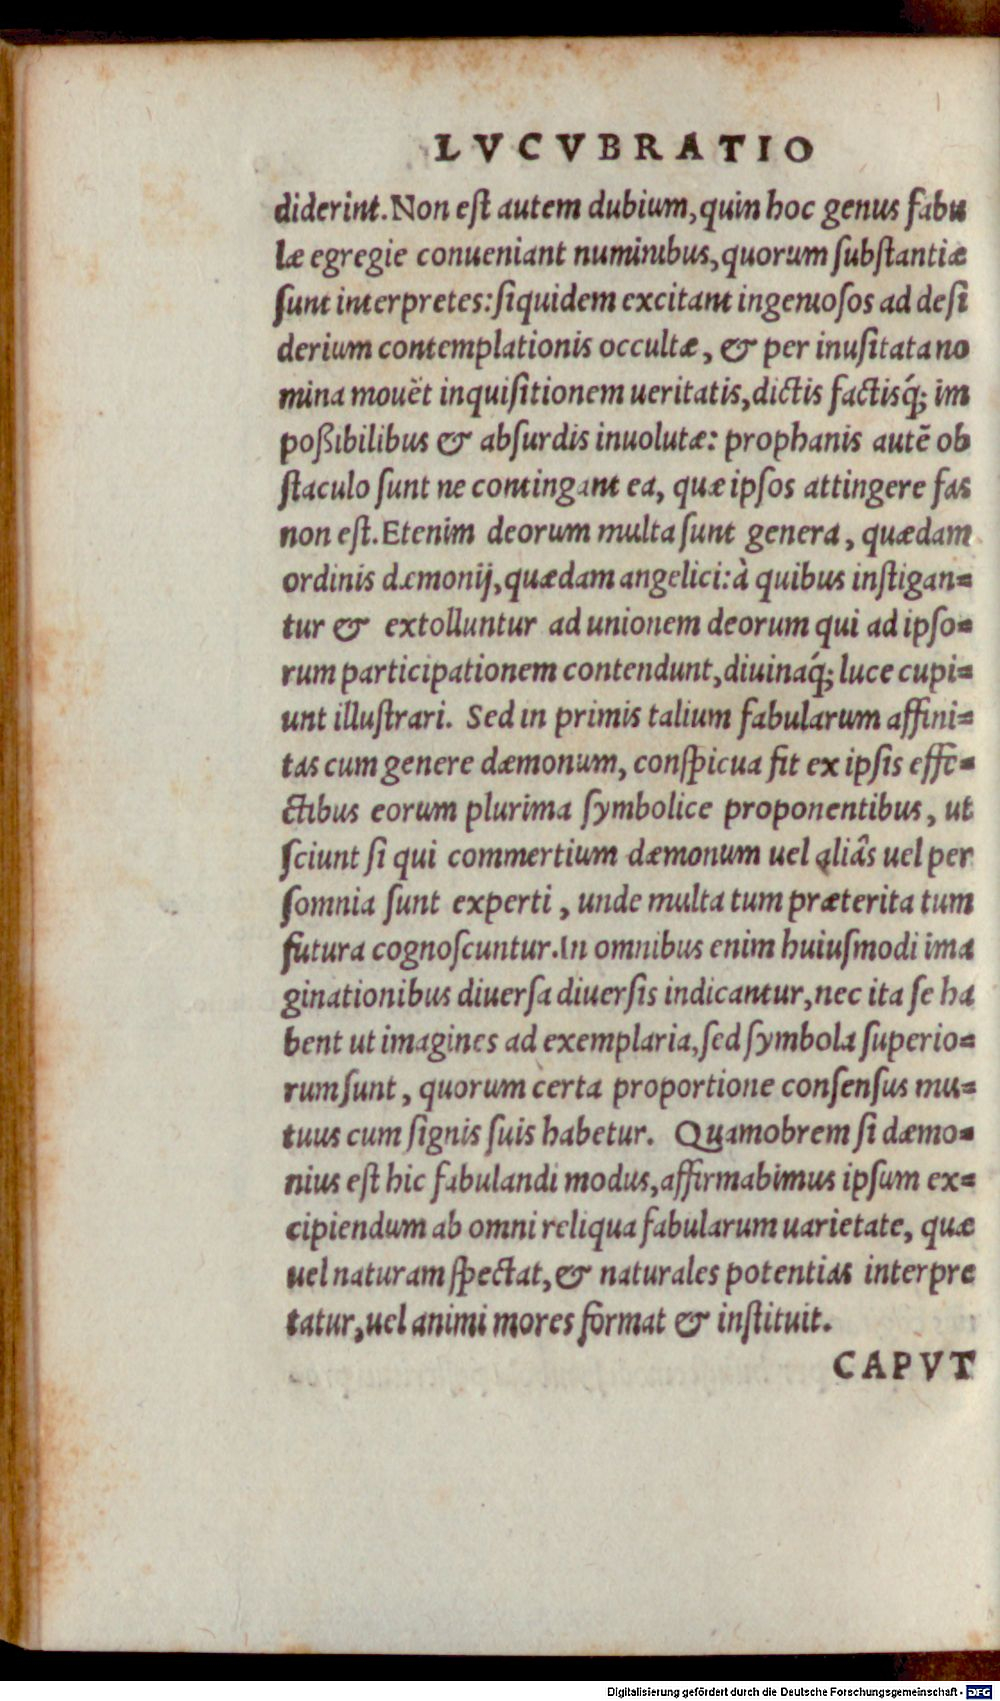 LVCVBRATIO
diderint. Non eſt autem dubium, quin hoc genus fabu
læ egregie conueniant numinibus, quorum ſubſtantiæ
ſunt interpretes: ſiquidem excitant ingenioſos ad deſi
derium contemplationis occultæ, & per inuſitata no
mina mouẽt inquiſitionem ueritatis, dictis factisq́; im
poßibilibus & abſurdis inuolutæ: prophanis autẽ ob
ſtaculo ſunt ne contingant ea, quæ ipſos attingere fas
non eſt. Etenim deorum multa ſunt genera, quædam
ordinis dæmonij, quædam angelici: à quibus inſtigan=
tur & extolluntur ad unionem deorum qui ad ipſo=
rum participationem contendunt, diuinaq́; luce cupi=
unt illuſtrari. Sed in primis talium fabularum affini=
tas cum genere dæmonum, conſpicua fit ex ipſis effe=
ctibus eorum plurima ſymbolice proponentibus, ut
ſciunt ſi qui commertium dæmonum uel aliâs uel per
ſomnia ſunt experti, unde multa tum præterita tum
futura cognoſcuntur. In omnibus enim huiuſmodi ima
ginationibus diuerſa diuerſis indicantur, nec ita ſe ha
bent ut imagines ad exemplaria, ſed ſymbola ſuperio=
rum ſunt, quorum certa proportione conſenſus mu=
tuus cum ſignis ſuis habetur. Quamobrem ſi dæmo=
nius eſt hic fabulandi modus, affirmabimus ipſum ex=
cipiendum ab omni reliqua fabularum uarietate, quæ
uel naturam ſpectat, & naturales potentias interpre
tatur, uel animi mores format & inſtituit.
CAPVT
Digitalisierung gefördert durch die Deutsche Forschungsgemeinschaft - DFG